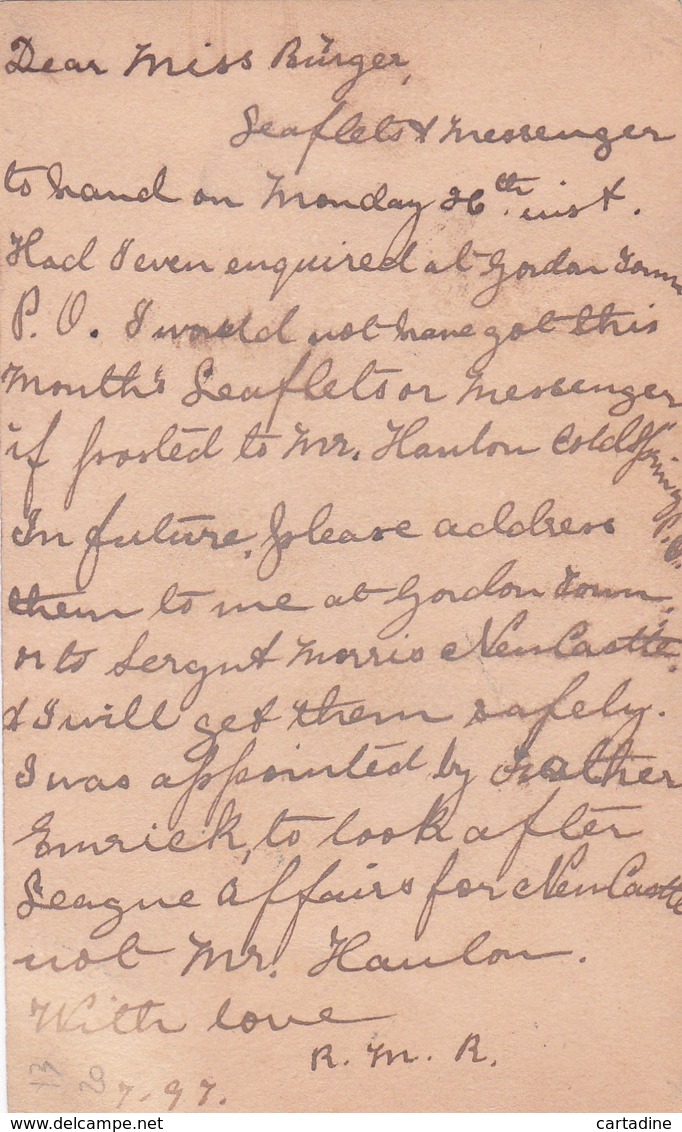 Dear Miss Bürger,
Leaflets & Messenger
to hand on Monday 26th. inst.
Had I even enquired at Gordon Town
P. O. I would not have got this
Month's Leaflets or Messenger
if posted to Mr. Hanlon Cold Spring P.O.
In future, please address
them to me at Gordon Town,
or to Sergnt Morris New Castle,
& I will get them safely.
I was appointed by Father
Emrick, to look after
League Affairs for New Castle
not Mr. Hanlon.
With love
R. M. R.
7. 97.
cartadine